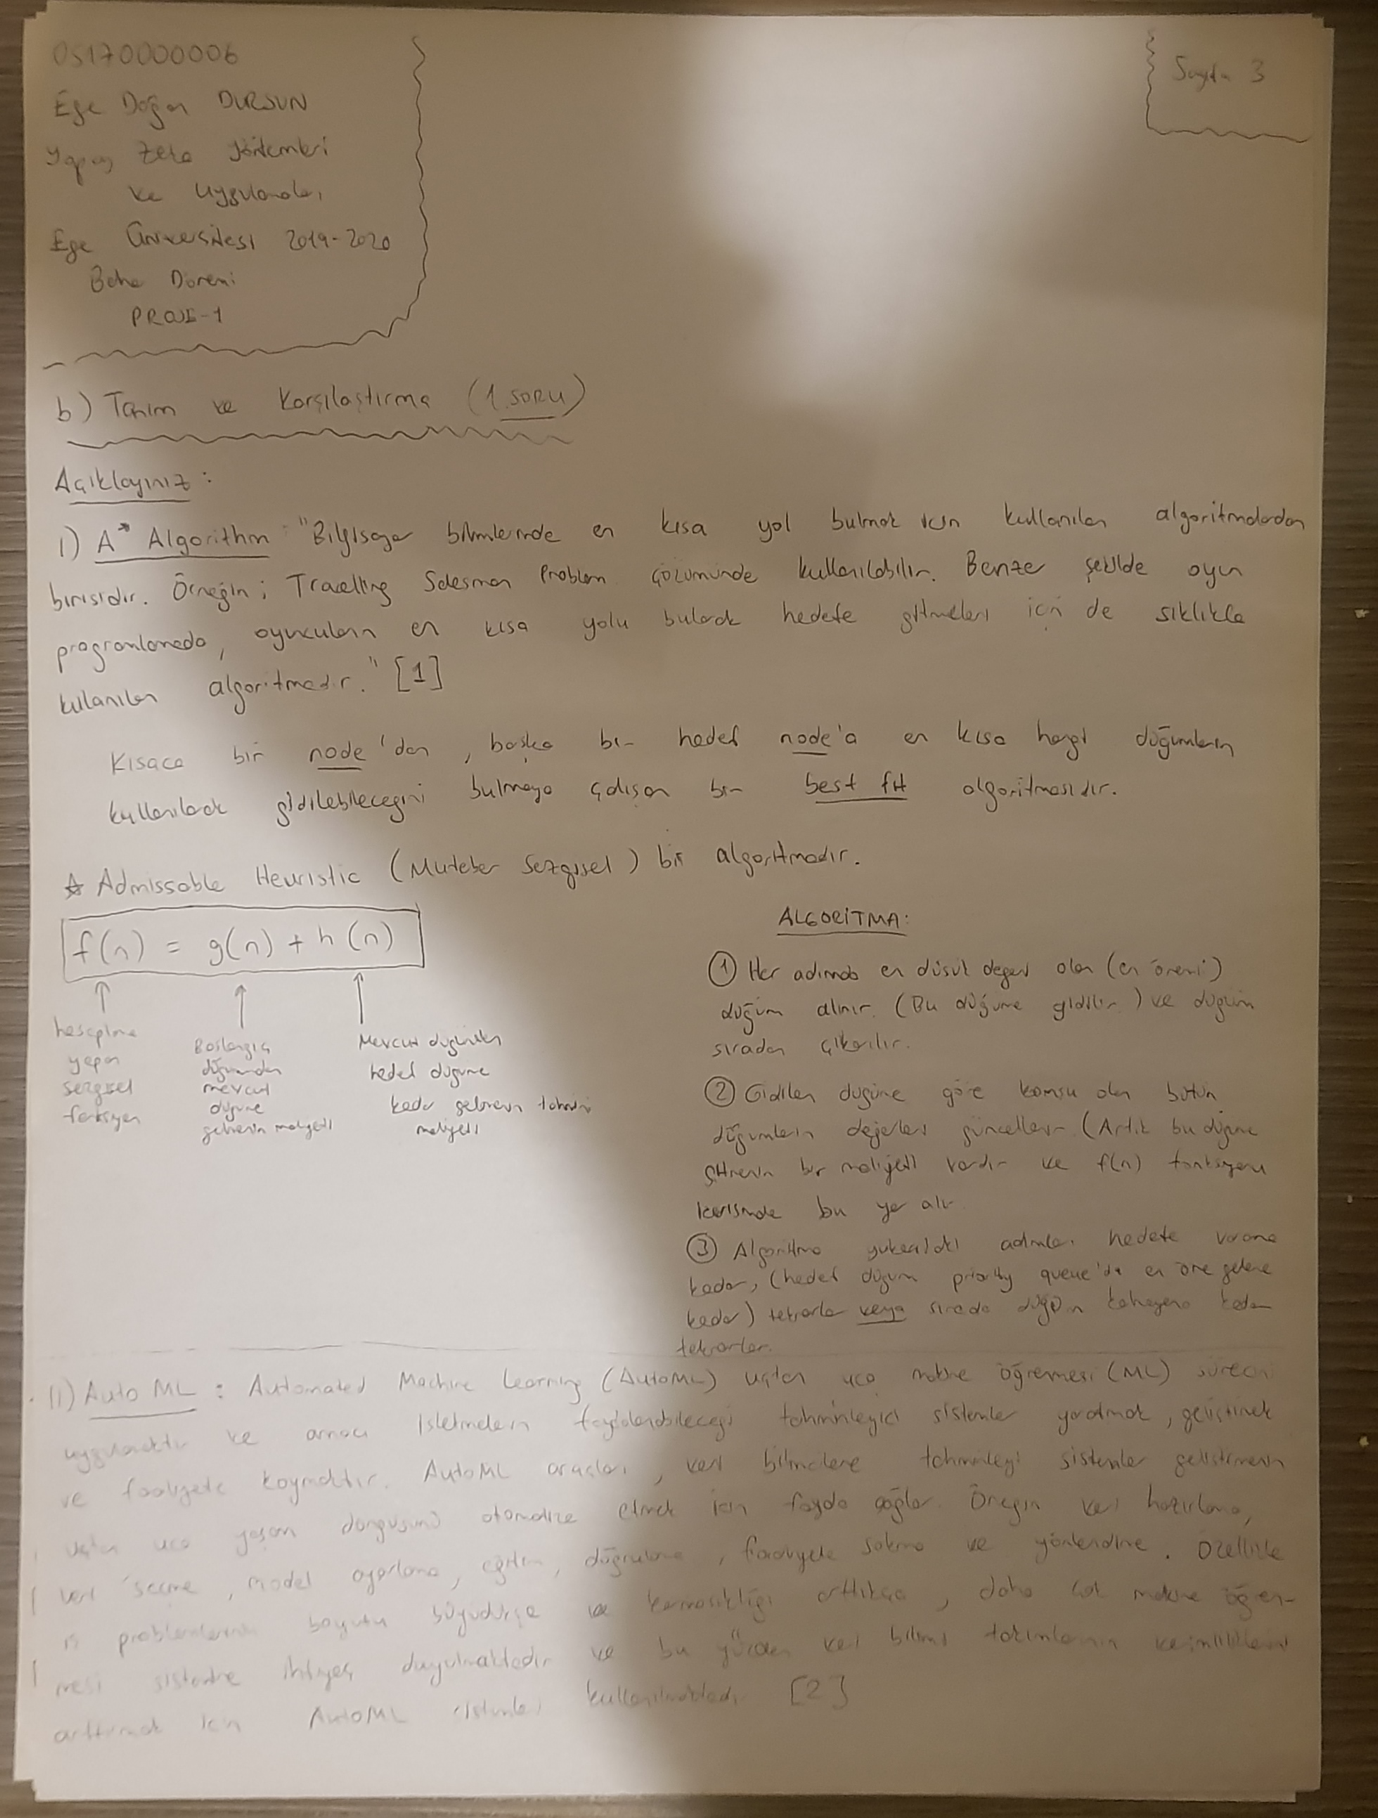 05170000006
Ege Doğan DURSUN
Yapay Zeka Yöntemleri
ve Uygulamaları
Ege Üniversitesi 2019-2020
Bahar Dönemi
PROJE-1
Sayfa 3
b) Tanım ve Karşılaştırma (1. SORU)
Açıklayınız :
i) A* Algorithm : "Bilgisayar bilimlerinde en kısa yol bulmak için kullanılan algoritmalardan
birisidir. Örneğin; Travelling Salesman Problem çözümünde kullanılabilir. Benzer şekilde oyun
programlamada, oyuncuların en kısa yolu bularak hedefe gitmeleri için de sıklıkla
kullanılan algoritmadır." [1]
Kısaca bir node'dan, başka bir hedef node'a en kısa hangi düğümlerin
kullanılarak gidilebileceğini bulmaya çalışan bir best fit algoritmasıdır.
☆ Admissable Heuristic (Muteber Sezgisel) bir algoritmadır.
f(n) = g(n) + h(n)
hesaplama
yapan
sezgisel
fonksiyon
Başlangıç
düğümünden
mevcut
düğüme
gelmenin maliyeti
Mevcut düğümden
hedef düğüme
kadar gelmenin tahmini
maliyeti
ALGORİTMA:
① Her adımda en düşük değeri olan (en önemli)
düğüm alınır. (Bu düğüme gidilir) ve düğüm
sıradan çıkarılır.
② Gidilen düğüme göre komşu olan bütün
düğümlerin değerleri güncellenir (Artık bu düğüme
gitmenin bir maliyeti vardır ve f(n) fonksiyonu
içerisinde bu yer alır
③ Algoritma yukarıdaki adımları hedefe varana
kadar, (hedef düğüm priority queue'da en öne gelene
kadar) tekrarlar veya sırada düğüm kalmayana kadar
tekrarlar.
ii) Auto ML : Automated Machine Learning (AutoML) uçtan uca makine öğrenmesi (ML) sürecini
uygulamaktır ve amacı işletmelerin faydalanabileceği tahminleyici sistemler yaratmak, geliştirmek
ve faaliyete koymaktır. AutoML araçları, veri bilimcilere tahminleyici sistemler geliştirmenin
uçtan uca yaşam döngüsünü otomatize etmek için fayda sağlar. Örneğin veri hazırlama,
veri seçme, model ayarlama, eğitim, doğrulama, faaliyete sokma ve yönlendirme. Özellikle
iş problemlerinin boyutu büyüdükçe ve karmaşıklığı arttıkça, daha çok makine öğren-
mesi sistemine ihtiyaç duyulmaktadır ve bu yüzden veri bilimi takımlarının verimliliklerini
arttırmak için AutoML sistemleri kullanılmaktadır [2]